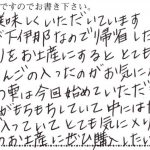 ですのでお書き下さい。
美味しくいただいています
が下伊那なので帰省した
りをお土産にするととても
んごの入ったのがお気に
の雲は今回始めていただ
がもちもちしていて中に
入っていてとても気に入り
のお土産にぜひ購入したい